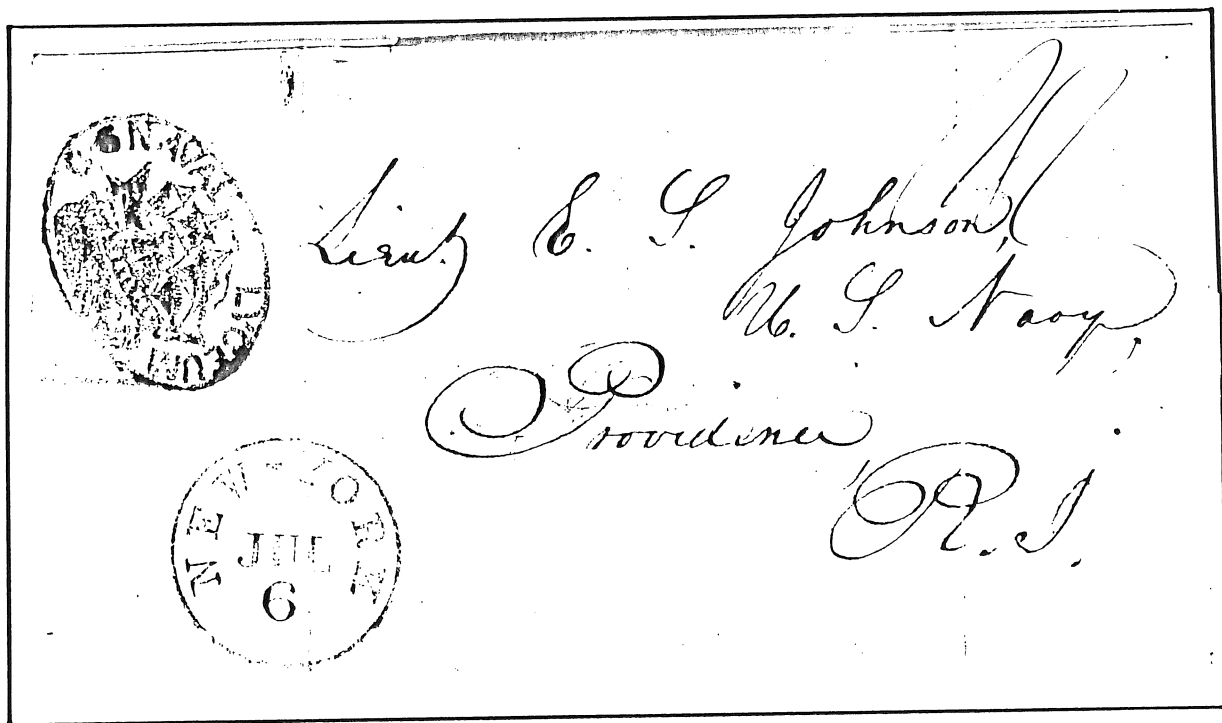 Lieut. E. S. Johnson,
U. S. Navy,
Providence
R. I.
NEW-YORK
JUL
6